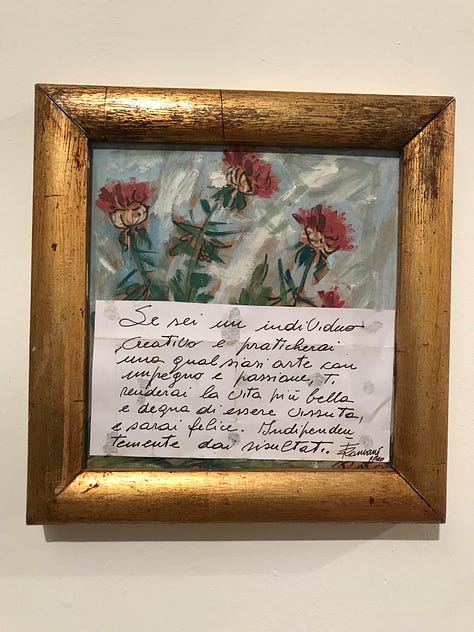 Se sei un individuo
creativo e praticherai
una qualsiasi arte con
impegno e passione, ti
renderai la vita più bella
e degna di essere vissuta,
e sarai felice. Indipenden
temente dai risultati.